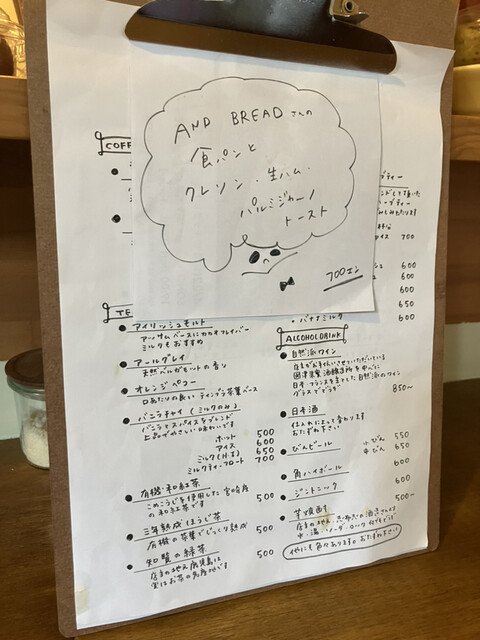 AND BREADさんの
食パンと
クレソン・生ハム・
パルミジャーノ
トースト
700エン
COFF
TE
アイリッシュモルト
アッサムベースにカカオフレイバー
ミルクもおすすめ
アールグレイ
天然ベルガモットの香り
オレンジペコー
口あたりの良い
茶葉ベース
バニラチャイ(ミルクのみ)
バニラとスパイスをブレンド
上品でやさしい味わいです
ホット 500
アイス 600
ミルク 650
ミルクティーフロート 700
有機・和紅茶
を使用した宮崎産
の和紅茶です 500
三年熟成ほうじ茶
有機の茶葉でじっくり熟成 500
知覧の緑茶
店主の地元鹿児島は
実はお茶の名産地です 500
ティー
アイス 700
600
600
600
650
バナナミルク 600
ALCOHOLDRINK
自然派ワイン
店主がお手伝いさせていただいている
日本・フランスを主とした自然派のワイン
グラスでどうぞ 850〜
日本酒
仕入れによって変わります
おたずね下さい
びんビール 小びん 550
中びん 650
角ハイボール 600
ジントニック 600
芋焼酎 500〜
店主の地元
水・湯・ソーダ・ロック
他にも色々あります。おたずね下さい